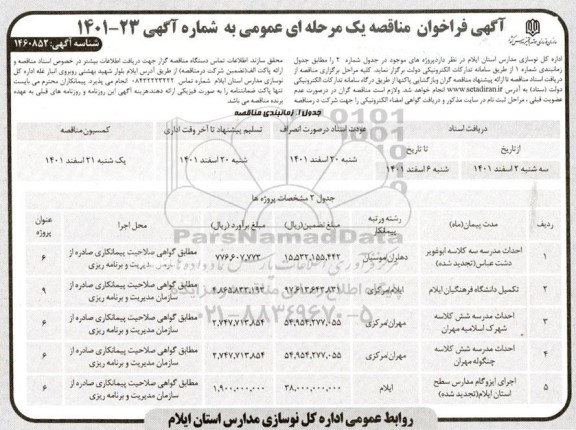 آگهی فراخوان مناقصه یک مرحله ای عمومی به شماره آگهی ۲۳-۱۴۰۱
شناسه آگهی: ۱۴۶۰۸۵۲
اداره کل نوسازی مدارس استان ایلام در نظر دارد پروژه های موجود در جدول شماره ۲ را مطابق جدول
زمانبندی شماره ۱ از طریق سامانه تدارکات الکترونیکی دولت برگزار نماید. کلیه مراحل برگزاری مناقصه از
دریافت اسناد مناقصه تا ارائه پیشنهاد مناقصه گران و بازگشایی پاکتها از طریق درگاه سامانه تدارکات الکترونیکی
دولت (ستاد) به آدرس www.setadiran.ir انجام خواهد شد. ولازم است مناقصه گران در صورت عدم
عضویت قبلی ، مراحل ثبت نام در سایت مذکور و دریافت گواهی امضاء الکترونیکی را جهت شرکت در مناقصه
محقق سازند. اطلاعات تماس دستگاه مناقصه گزار جهت دریافت اطلاعات بیشتر در خصوص اسناد مناقصه و
ارائه پاکت الف(تضمین شرکت درمناقصه) از طریق آدرس ایلام بلوار شهید بهشتی روبروی انبار غله اداره کل
نوسازی مدارس ایلام شماره تماس ۰۸۴۳۲۲۲۳۲۲۲ انجام می پذیرد. پیمانکاران محترم می بایست
تنها پاکت ضمانتنامه را به صورت فیزیکی ارائه دهند.هزینه آگهی این روزنامه و روزنامه های قبلی به عهده
برنده مناقصه می باشد.
جدول۱. زمانبندی مناقصه
دریافت اسناد عودت اسناد درصورت انصراف تسلیم پیشنهاد تا آخر وقت اداری کمسیون مناقصه
ازتاریخ تا تاریخ
سه شنبه ۲ اسفند ۱۴۰۱ شنبه ۶ اسفند ۱۴۰۱ شنبه ۲۰ اسفند ۱۴۰۱ شنبه ۲۰ اسفند ۱۴۰۱ یک شنبه ۲۱ اسفند ۱۴۰۱
جدول ۲ مشخصات پروژه ها
ردیف مدت پیمان(ماه) رشته ورتبه پیمانکار مبلغ تضمین(ریال) مبلغ برآورد (ریال) محل اجرا عنوان پروژه
۱ احداث مدرسه سه کلاسه ابوغویر دشت عباس(تجدید شده) دهلران/موسیان ۱۵,۵۳۲,۱۵۵,۴۴۲ ۷۷۶,۶۰۷,۷۷۳ مطابق گواهی صلاحیت پیمانکاری صادره از سازمان مدیریت و برنامه ریزی ۶
۲ تکمیل دانشگاه فرهنگیان ایلام ایلام/مرکزی ۹۷,۶۱۳,۶۴۳,۸۳۱ ۴,۸۶۵,۸۳۳,۱۹۳ مطابق گواهی صلاحیت پیمانکاری صادره از سازمان مدیریت و برنامه ریزی ۹
۳ احداث مدرسه شش کلاسه شهرک اسلامیه مهران مهران/مرکزی ۵۴,۹۵۴,۲۷۷,۰۵۵ ۲,۷۴۷,۷۱۳,۸۵۴ مطابق گواهی صلاحیت پیمانکاری صادره از سازمان مدیریت و برنامه ریزی ۶
۴ احداث مدرسه شش کلاسه چنگوله مهران مهران/مرکزی ۵۴,۹۵۴,۲۷۷,۰۵۵ ۲,۷۴۷,۷۱۳,۸۵۴ مطابق گواهی صلاحیت پیمانکاری صادره از سازمان مدیریت و برنامه ریزی ۶
۵ اجرای ایزوگام مدارس سطح استان ایلام(تجدید شده) ایلام ۳۸,۰۰۰,۰۰۰,۰۰۰ ۱,۹۰۰,۰۰۰,۰۰۰ مطابق گواهی صلاحیت پیمانکاری صادره از سازمان مدیریت و برنامه ریزی ۶
ParsNamadData
۰۲۱-۸۸۳۴۹۶۷۰-۵
روابط عمومی اداره کل نوسازی مدارس استان ایلام